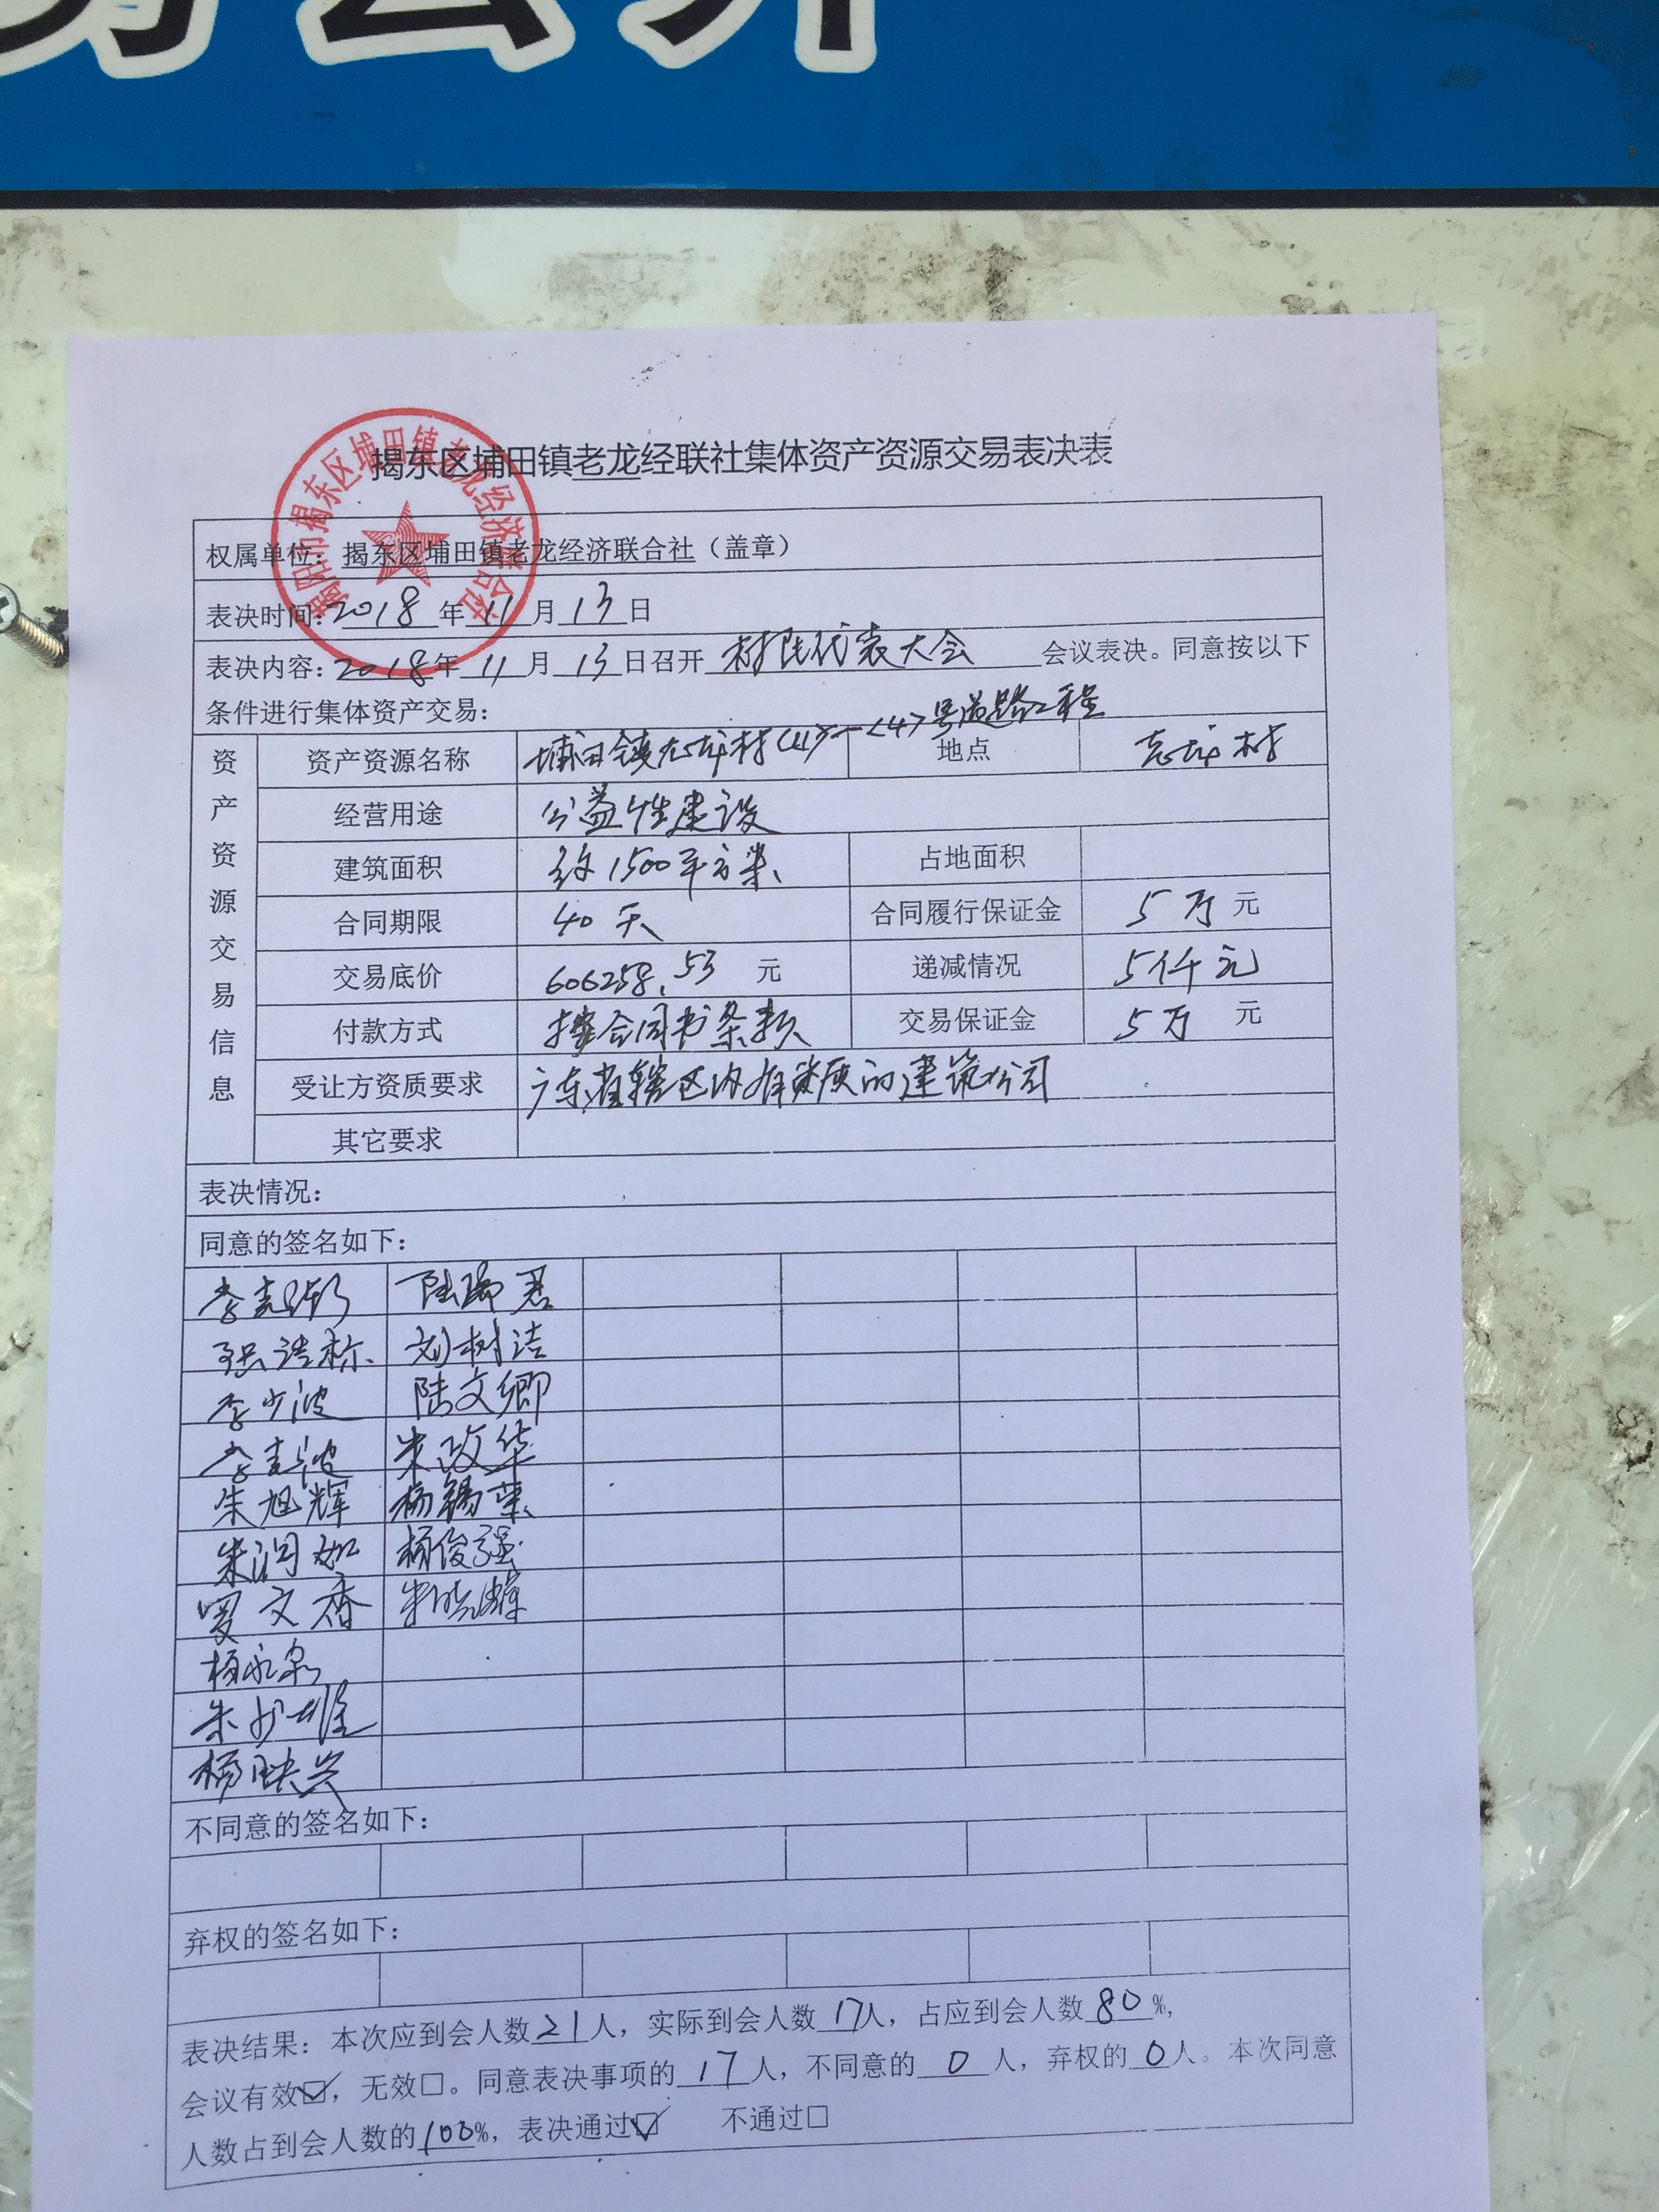 务公开
揭东区埔田镇老龙经联社集体资产资源交易表决表
权属单位：揭东区埔田镇老龙经济联合社（盖章）
表决时间：2018年11月13日
表决内容：2018年11月13日召开村民代表大会会议表决。同意按以下
条件进行集体资产交易：
资产资源交易信息
资产资源名称 埔田镇老龙村<1>—<4>号道路工程 地点 老龙村
经营用途 公益性建设
建筑面积 约1500平方米 占地面积
合同期限 40天 合同履行保证金 5万元
交易底价 606258.53元 递减情况 5仟元
付款方式 按合同书条款 交易保证金 5万元
受让方资质要求 广东省辖区内有资质的建筑公司
其它要求
表决情况：
同意的签名如下：
陆瑞君
刘树洁
李少波 陆文卿
朱政华
朱旭辉 杨锡荣
朱润如 杨俊强
罗文香
杨永泉
朱少雄
杨映兴
不同意的签名如下：
弃权的签名如下：
表决结果：本次应到会人数21人，实际到会人数17人，占应到会人数80%，
会议有效☑，无效□。同意表决事项的17人，不同意的0人，弃权的0人。本次同意
人数占到会人数的100%，表决通过☑ 不通过□